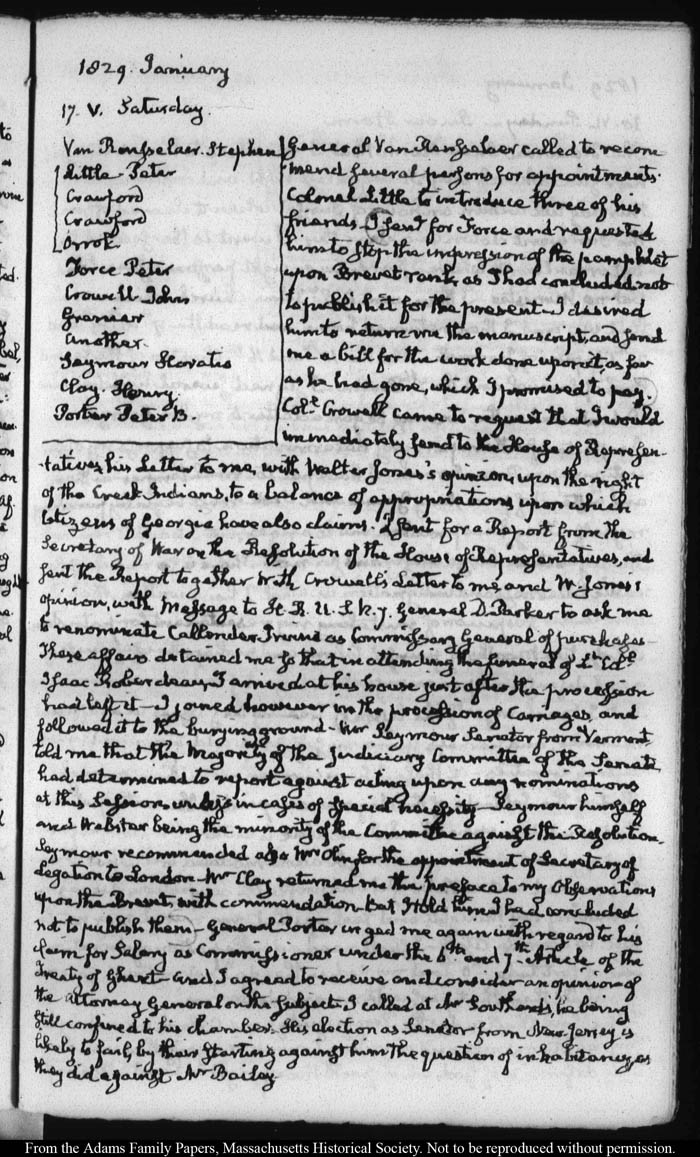 1829. January
17. V. Saturday.
Van Rensselaer. Stephen
Little. Peter
Crawford
Crawford
Orrok
Force Peter
Crowell John
Granier
another.
Seymour Horatio
Clay. Henry.
Porter Peter B.
General Van Rensselaer called to recom
mend several persons for appointments.
Colonel Little to introduce three of his
friends. I sent for Force and requested
him to stop the impression of the pamphlet
upon Brevet rank, as I had concluded not
to publish it for the present. I desired
him to return me the manuscript, and send
me a bill for the work done upon it, as far
as he had gone, which I promised to pay.
Coll. Crowell came to request that I would
immediately send to the House of Represen-
-tatives, his Letter to me, with Walter Jones's opinion, upon the right
of the Creek Indians, to a balance of appropriations, upon which
Citizens of Georgia have also claims. I sent for a Report from the
Secretary of War on the Resolution of the House of Representatives, and
sent the Report together with Crowell's Letter to me and W. Jones's
opinion, with Message to H. R. U. S. N. 7. General D. Parker to ask me
to renominate Callender Irvine as Commissary General of purchases—
These affairs detained me so that in attending the funeral of Lt. Coll.
Isaac Roberdeau, I arrived at his house just after the procession
had left it—I joined however in the procession of Carriages, and
followed it to the burying ground—Mr Seymour Senator from Vermont,
told me that the Majority of the Judiciary Committee of the Senate
had determined to report against acting upon any nominations
at this Session, unless in cases of special necessity—Seymour himself
and Webster being the minority of the Committee against the Resolution.
Seymour recommended also Mr Olin for the appointment of Secretary of
Legation to London—Mr Clay returned me the preface to my Observations
upon the Brevet, with commendation. But I told him I had concluded
not to publish them—General Porter urged me again with regard to his
claim for Salary as Commissioner under the 6th and 7th Article of the
Treaty of Ghent and I agreed to receive and consider an opinion of
the Attorney General on the subject. I called at Mr Southard's, he being
still confined to his chamber. His election as Senator from New-Jersey is
likely to fail, by their starting against him the question of inhabitancy, as
they did against Mr Bailey.
From the Adams Family Papers, Massachusetts Historical Society. Not to be reproduced without permission.